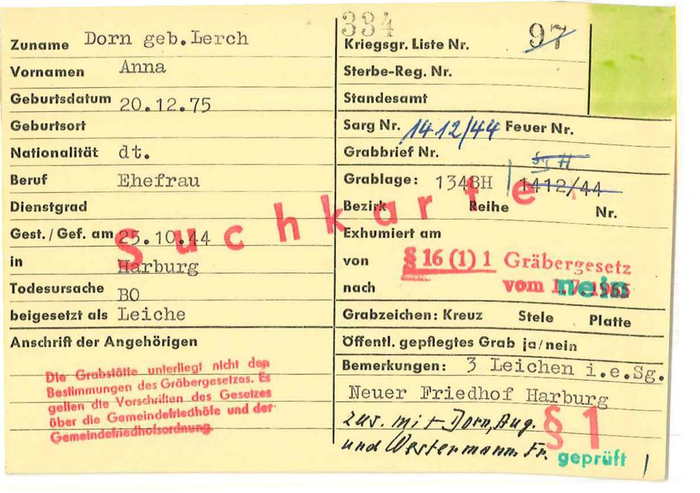 Zuname Dorn geb.Lerch
Vornamen Anna
Geburtsdatum 20.12.75
Geburtsort
Nationalität dt.
Beruf Ehefrau
Dienstgrad
Gest./Gef. am 25.10.44
in Harburg
Todesursache BO
beigesetzt als Leiche
Anschrift der Angehörigen
Die Grabstätte unterliegt nicht den
Bestimmungen des Gräbergesetzes. Es
gelten die Vorschriften des Gesetzes
über die Gemeindefriedhöfe und der
Gemeindefriedhofsordnung.
Suchkarte
334
Kriegsgr. Liste Nr. 97
Sterbe-Reg. Nr.
Standesamt
Sarg Nr. 1412/44 Feuer Nr.
Grabbrief Nr.
Grablage: 1348H 1412/44
Bezirk Reihe Nr.
Exhumiert am
von § 16 (1) 1 Gräbergesetz
nach vom 1.7.1965
nein
Grabzeichen: Kreuz Stele Platte
Öffentl. gepflegtes Grab ja/nein
Bemerkungen: 3 Leichen i.e.Sg.
Neuer Friedhof Harburg
zus. mit Dorn, Aug.
und Westermann. Fr.
§ 1
geprüft